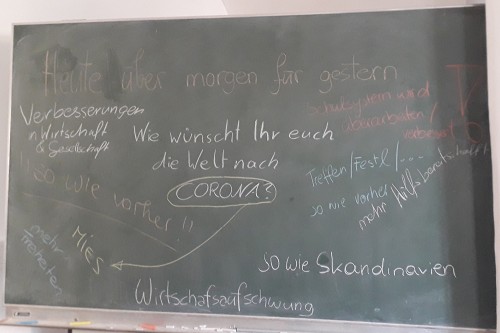 Heute über morgen für gestern
Verbesserungen
in Wirtschaft
& Gesellschaft
Wie wünscht Ihr euch
die Welt nach
CORONA?
Schulsystem wird
überarbeiten /
verbessert
!! so wie vorher !!
Treffen / Festl / ...
so wie vorher
mehr Hilfsbereitschaft
mehr
Freiheiten
MIES
so wie Skandinavien
Wirtschafsaufschwung